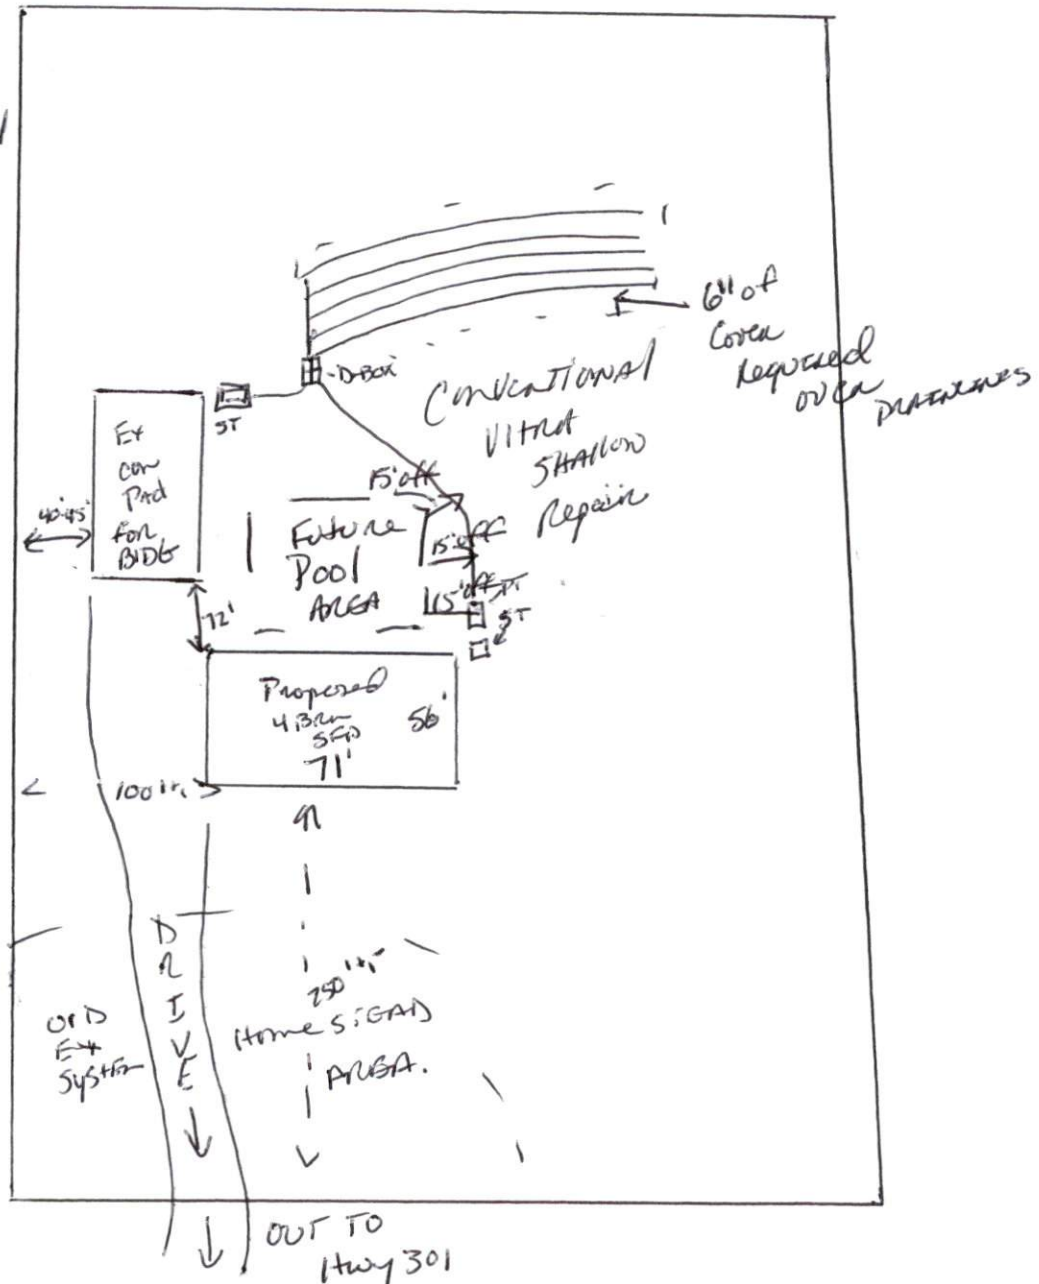 6" of
Cover
Required
over
DRAINLINES
D-BOX
ST
CONVENTIONAL
Ultra
SHALLOW
Repair
Ex
con
Pad
FOR
BLDG
40-45'
15' off
Future
Pool
AREA
15' off
15' off
ST
72'
Proposed
4 BRM
SFD
56'
71'
DRIVE
250'
Homestead
AREA.
OLD
Ex
System
OUT TO
Hwy 301